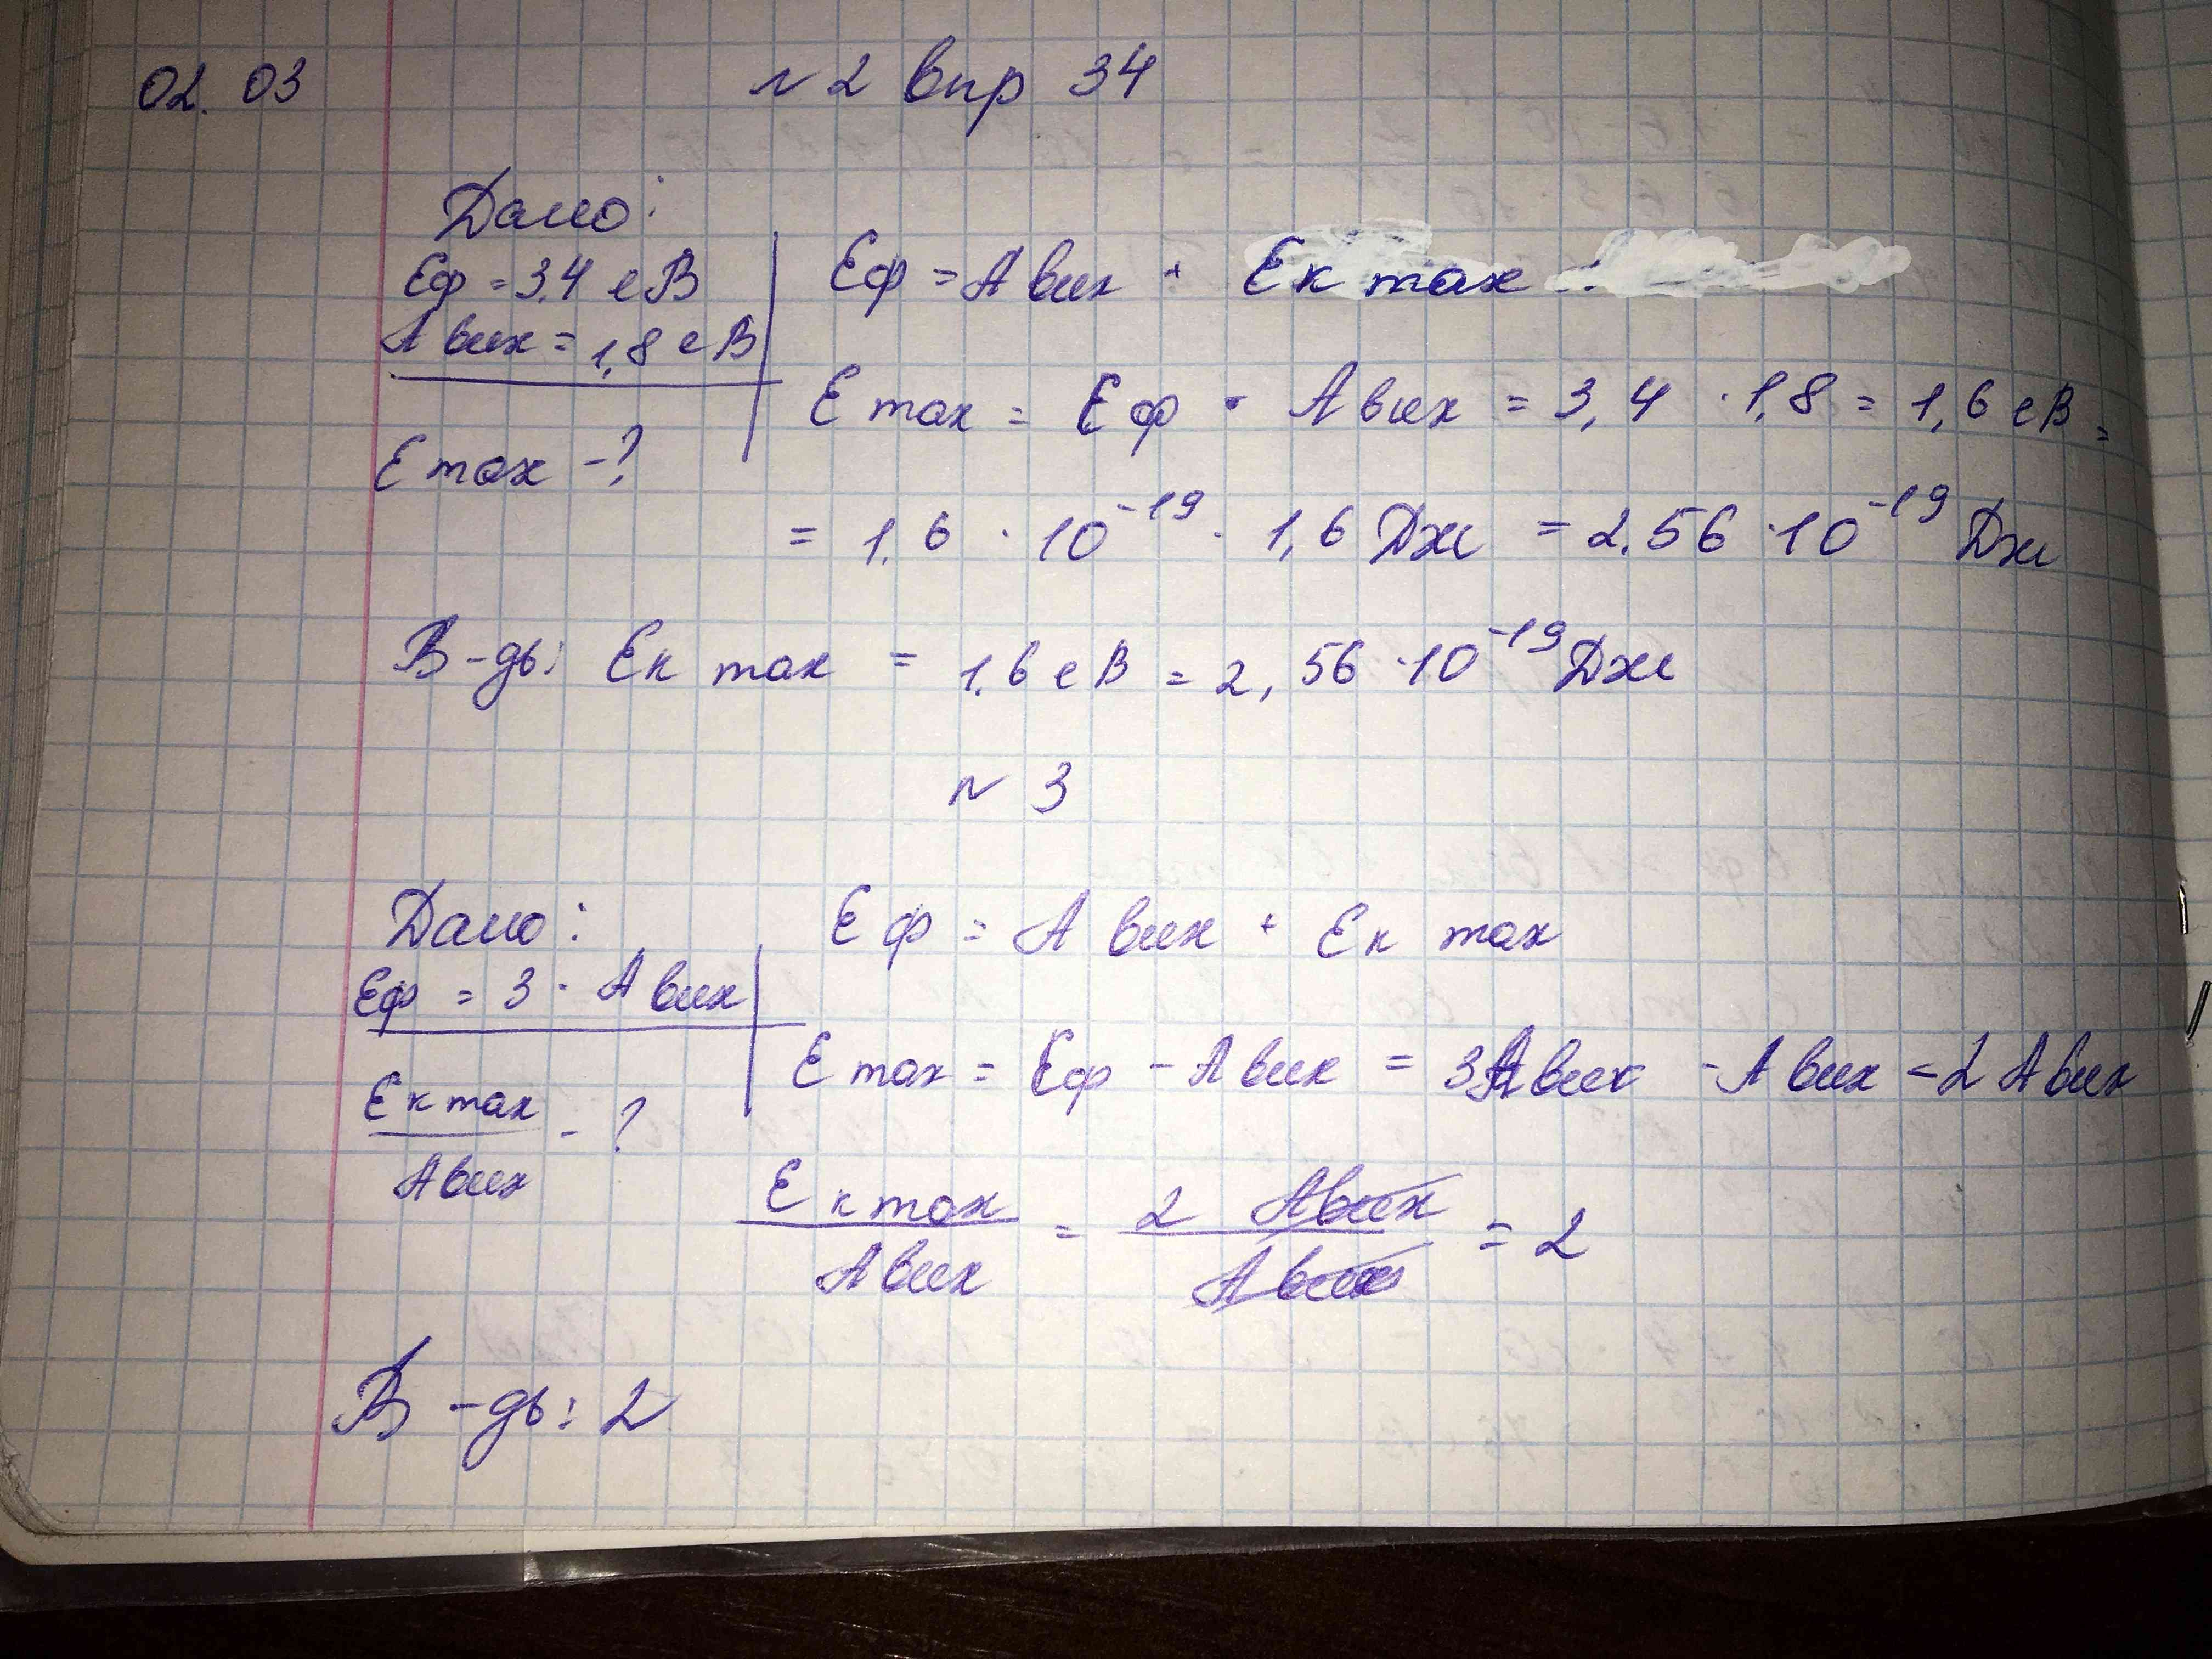 02.03
№2 впр 34
Дано:
Eф = 3,4 еВ
A вих = 1,8 еВ
E max - ?
Eф = A вих + Eк max
E max = Eф · A вих = 3,4 · 1,8 = 1,6 еВ =
= 1,6 · 10⁻¹⁹ · 1,6 Дж = 2,56 · 10⁻¹⁹ Дж
В-дь: Eк max = 1,6 еВ = 2,56 · 10⁻¹⁹ Дж
№3
Дано:
Eф = 3 · A вих
Eк max / A вих - ?
Eф = A вих + Eк max
E max = Eф - A вих = 3A вих - A вих = 2 A вих
Eк max / A вих = 2 A вих / A вих = 2
В-дь: 2